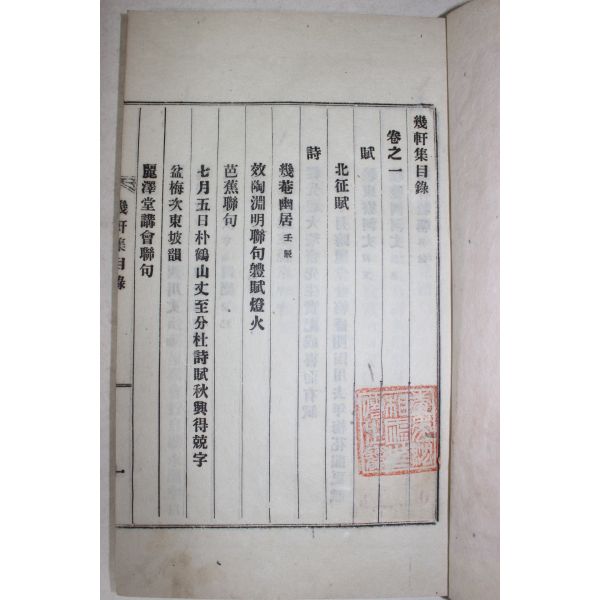 幾軒集目錄
卷之一
賦
北征賦
詩
幾菴幽居 壬辰
效陶淵明聯句軆賦燈火
芭蕉聯句
七月五日朴鶴山丈至分杜詩賦秋興得兢字
盆梅次東坡韻
麗澤堂講會聯句
幾軒集目錄
一